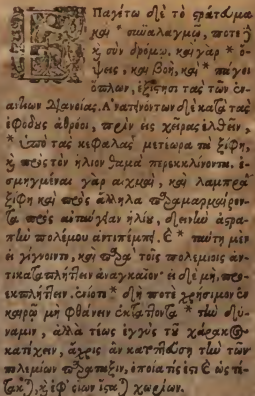 Ἐπαγέτω δὲ τὸ στράτευμα
καὶ * σὺν ἀλαλαγμῷ, ποτὲ ἢ
κ̀ σὺν δρόμῳ. καὶ γὰρ * ὄ-
ψεις, καὶ βοὴ, καὶ * πάγοι
ὅπλων, ἐξίστησι τὰς τῶν ἐν-
αντίων διανοίας. Ἀνατεινόντων δὲ κατὰ τὰς
ἐφόδους ἀθρόοι, πρὶν εἰς χεῖρας ἐλθεῖν,
* ὑπὸ τὰς κεφαλὰς μετέωρα τὰ ξίφη,
κ̀ πρὸς τὸν ἥλιον θαμὰ παρεκκλίνοντες. ἐ-
σμηγμέναι γὰρ αἰχμαὶ, καὶ λαμπρὰ
ξίφη καὶ πρὸς ἄλληλα παραμαρμαίρον-
τα πρὸς αὐταυγίαν ἡλίου, δεινὴν ἀστρα-
πὴν πολέμου ἀντιπέμπει. Ἐ * ταύτη μὲν
εἰ γίγνοιντο, καὶ παρὰ τοὺς πολεμίοις ἀν-
τικαταπλήττειν ἀναγκαῖον· εἰ δὲ μὴ, προ-
εκπλήττειν. ἐνίοτε * δὴ ποτὲ χρήσιμον ἐν
καιρῷ μὴ φθάνειν ἐκτάττοντα * τὴν δύ-
ναμιν, ἀλλὰ τέως ἐγγὺς τοῦ χάρακος
κατέχειν, ἄχρις ἂν κατοπτεύσῃ τὴν τῶν
πολεμίων παράταξιν, ὁποία τίς ἐστι ἐ ὡς τέ-
τακται, κ̀ ἐφ' οἵων ἵσταται χωρίων.